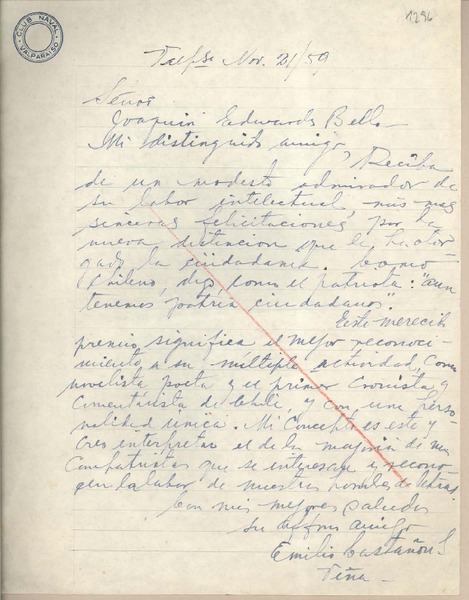 CLUB NAVAL
VALPARAISO
1296
Valpso Nov. 21/59
Señor
Joaquin Edwards Bello
Mi distinguido amigo,
Reciba
de un modesto admirador de
su labor intelectual, mis mas
sinceras felicitaciones, por la
nueva distincion que le ha otor-
gado la ciudadania. Como
chileno, digo, como el patriota: "aun
tenemos patria ciudadanos".
Este merecido
premio, significa el mejor reconoci-
miento, a su múltiple actividad, como
novelista poeta y el primer Cronista, y
Comentarista de Chile, y con una perso-
nalidad única. Mi Concepto es este y
creo interpretar el de la mayoria de mis
Compatriotas que se interesan y recono-
cen la labor de nuestros hombres de letras.
Con mis mejores saludos
su affmo amigo
Emilio Castañon S
Viña -